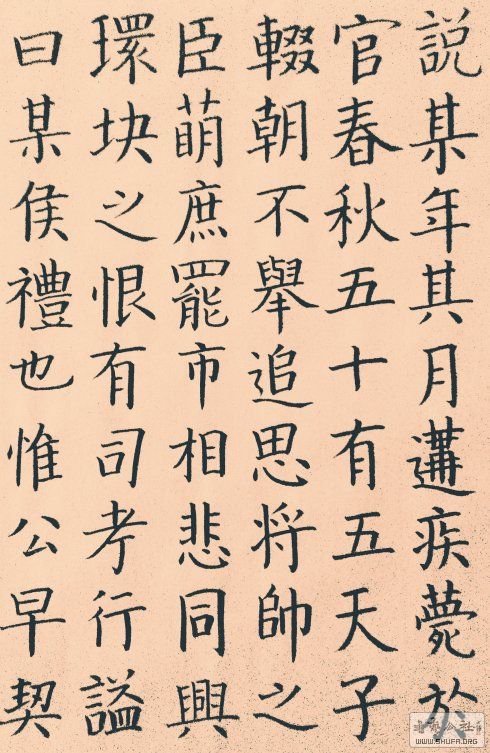 說某年其月遘疾薨於
官春秋五十有五天子
輟朝不舉追思將帥之
臣萌庶罷市相悲同興
環块之恨有司考行謚
曰某侯禮也惟公早契
WWW.SHUFA.ORG